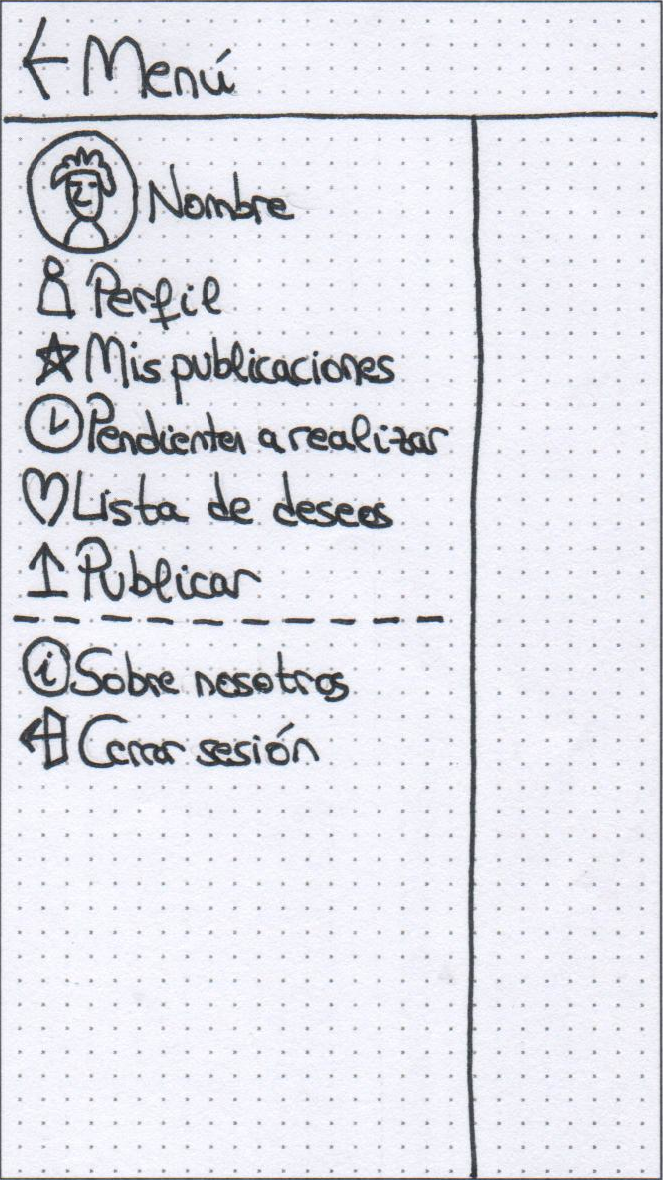 Menú
Nombre
Perfil
Mis publicaciones
Pendientes a realizar
Lista de deseos
Publicar
Sobre nosotros
Cerrar sesión